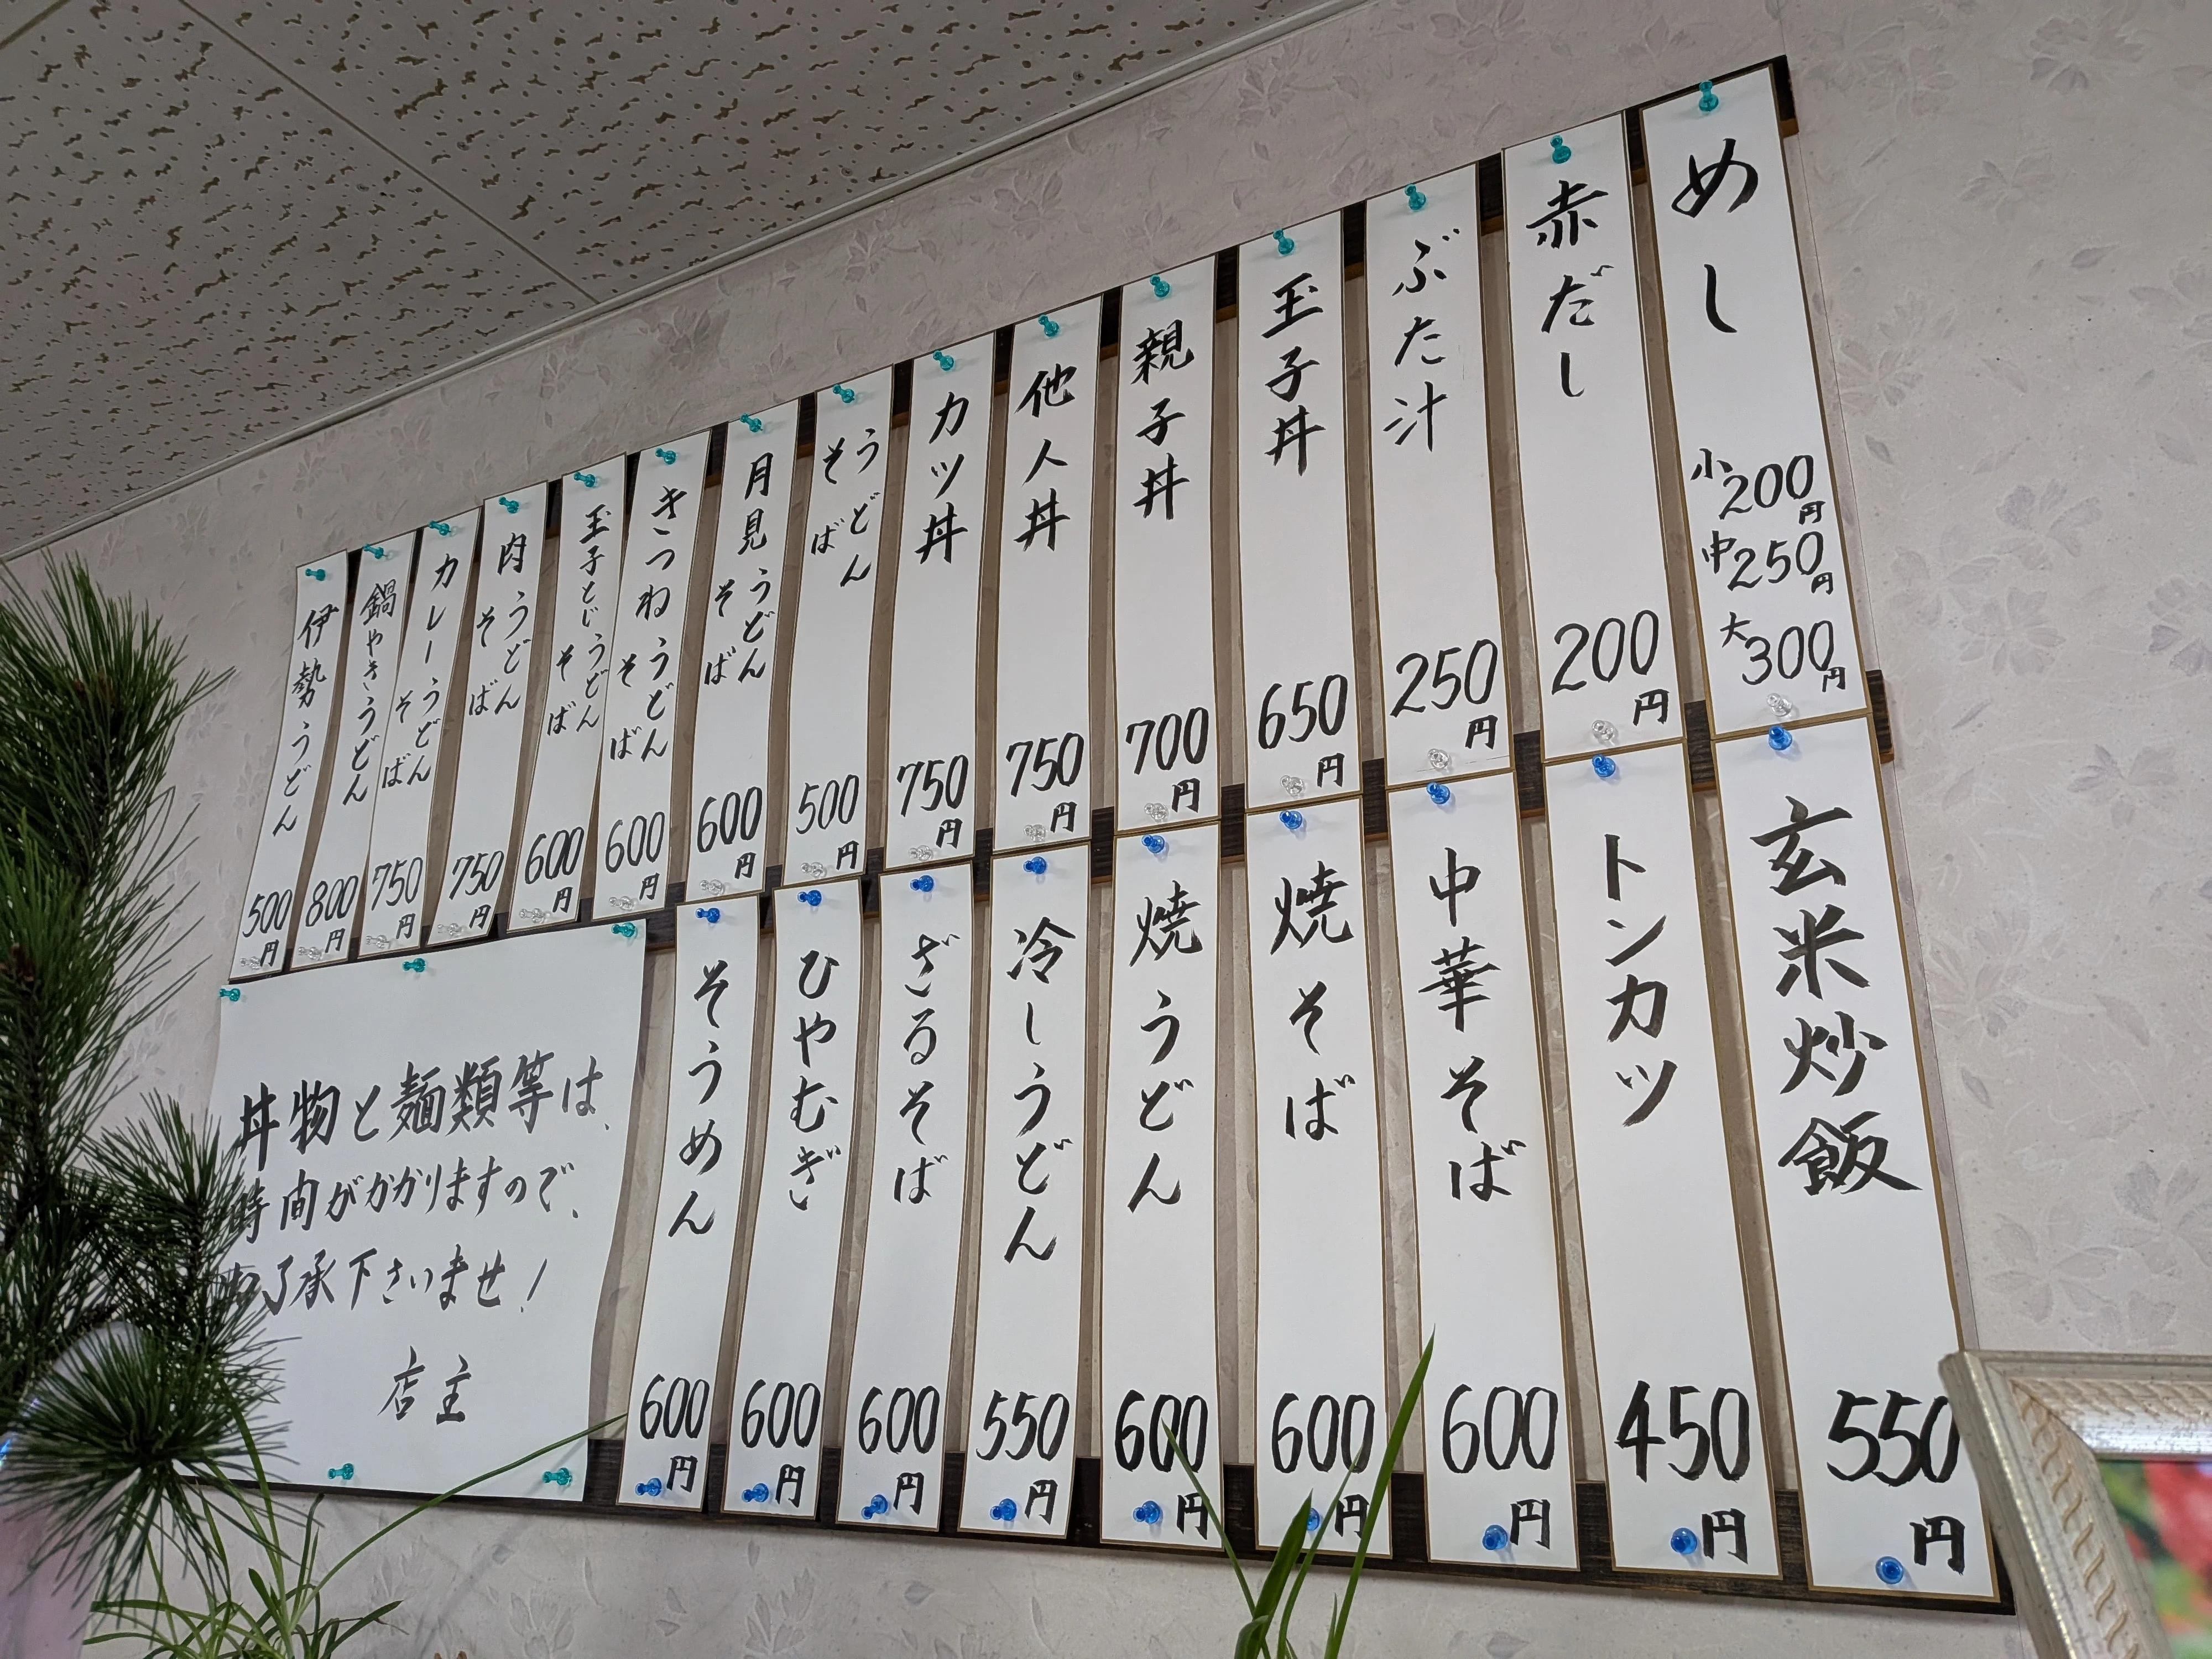 めし 小200円 中250円 大300円
赤だし 200円
ぶた汁 250円
玉子丼 650円
親子丼 700円
他人丼 750円
カツ丼 750円
うどん そば 500円
月見うどん そば 600円
きつねうどん そば 600円
玉子とじうどん そば 600円
肉うどん そば 750円
カレーうどん そば 750円
鍋やきうどん 800円
伊勢うどん 500円
玄米炒飯 550円
トンカツ 450円
中華そば 600円
焼そば 600円
焼うどん 600円
冷しうどん 550円
ざるそば 600円
ひやむぎ 600円
そうめん 600円
丼物と麺類等は、
時間がかかりますので、
了承下さいませ！
店主